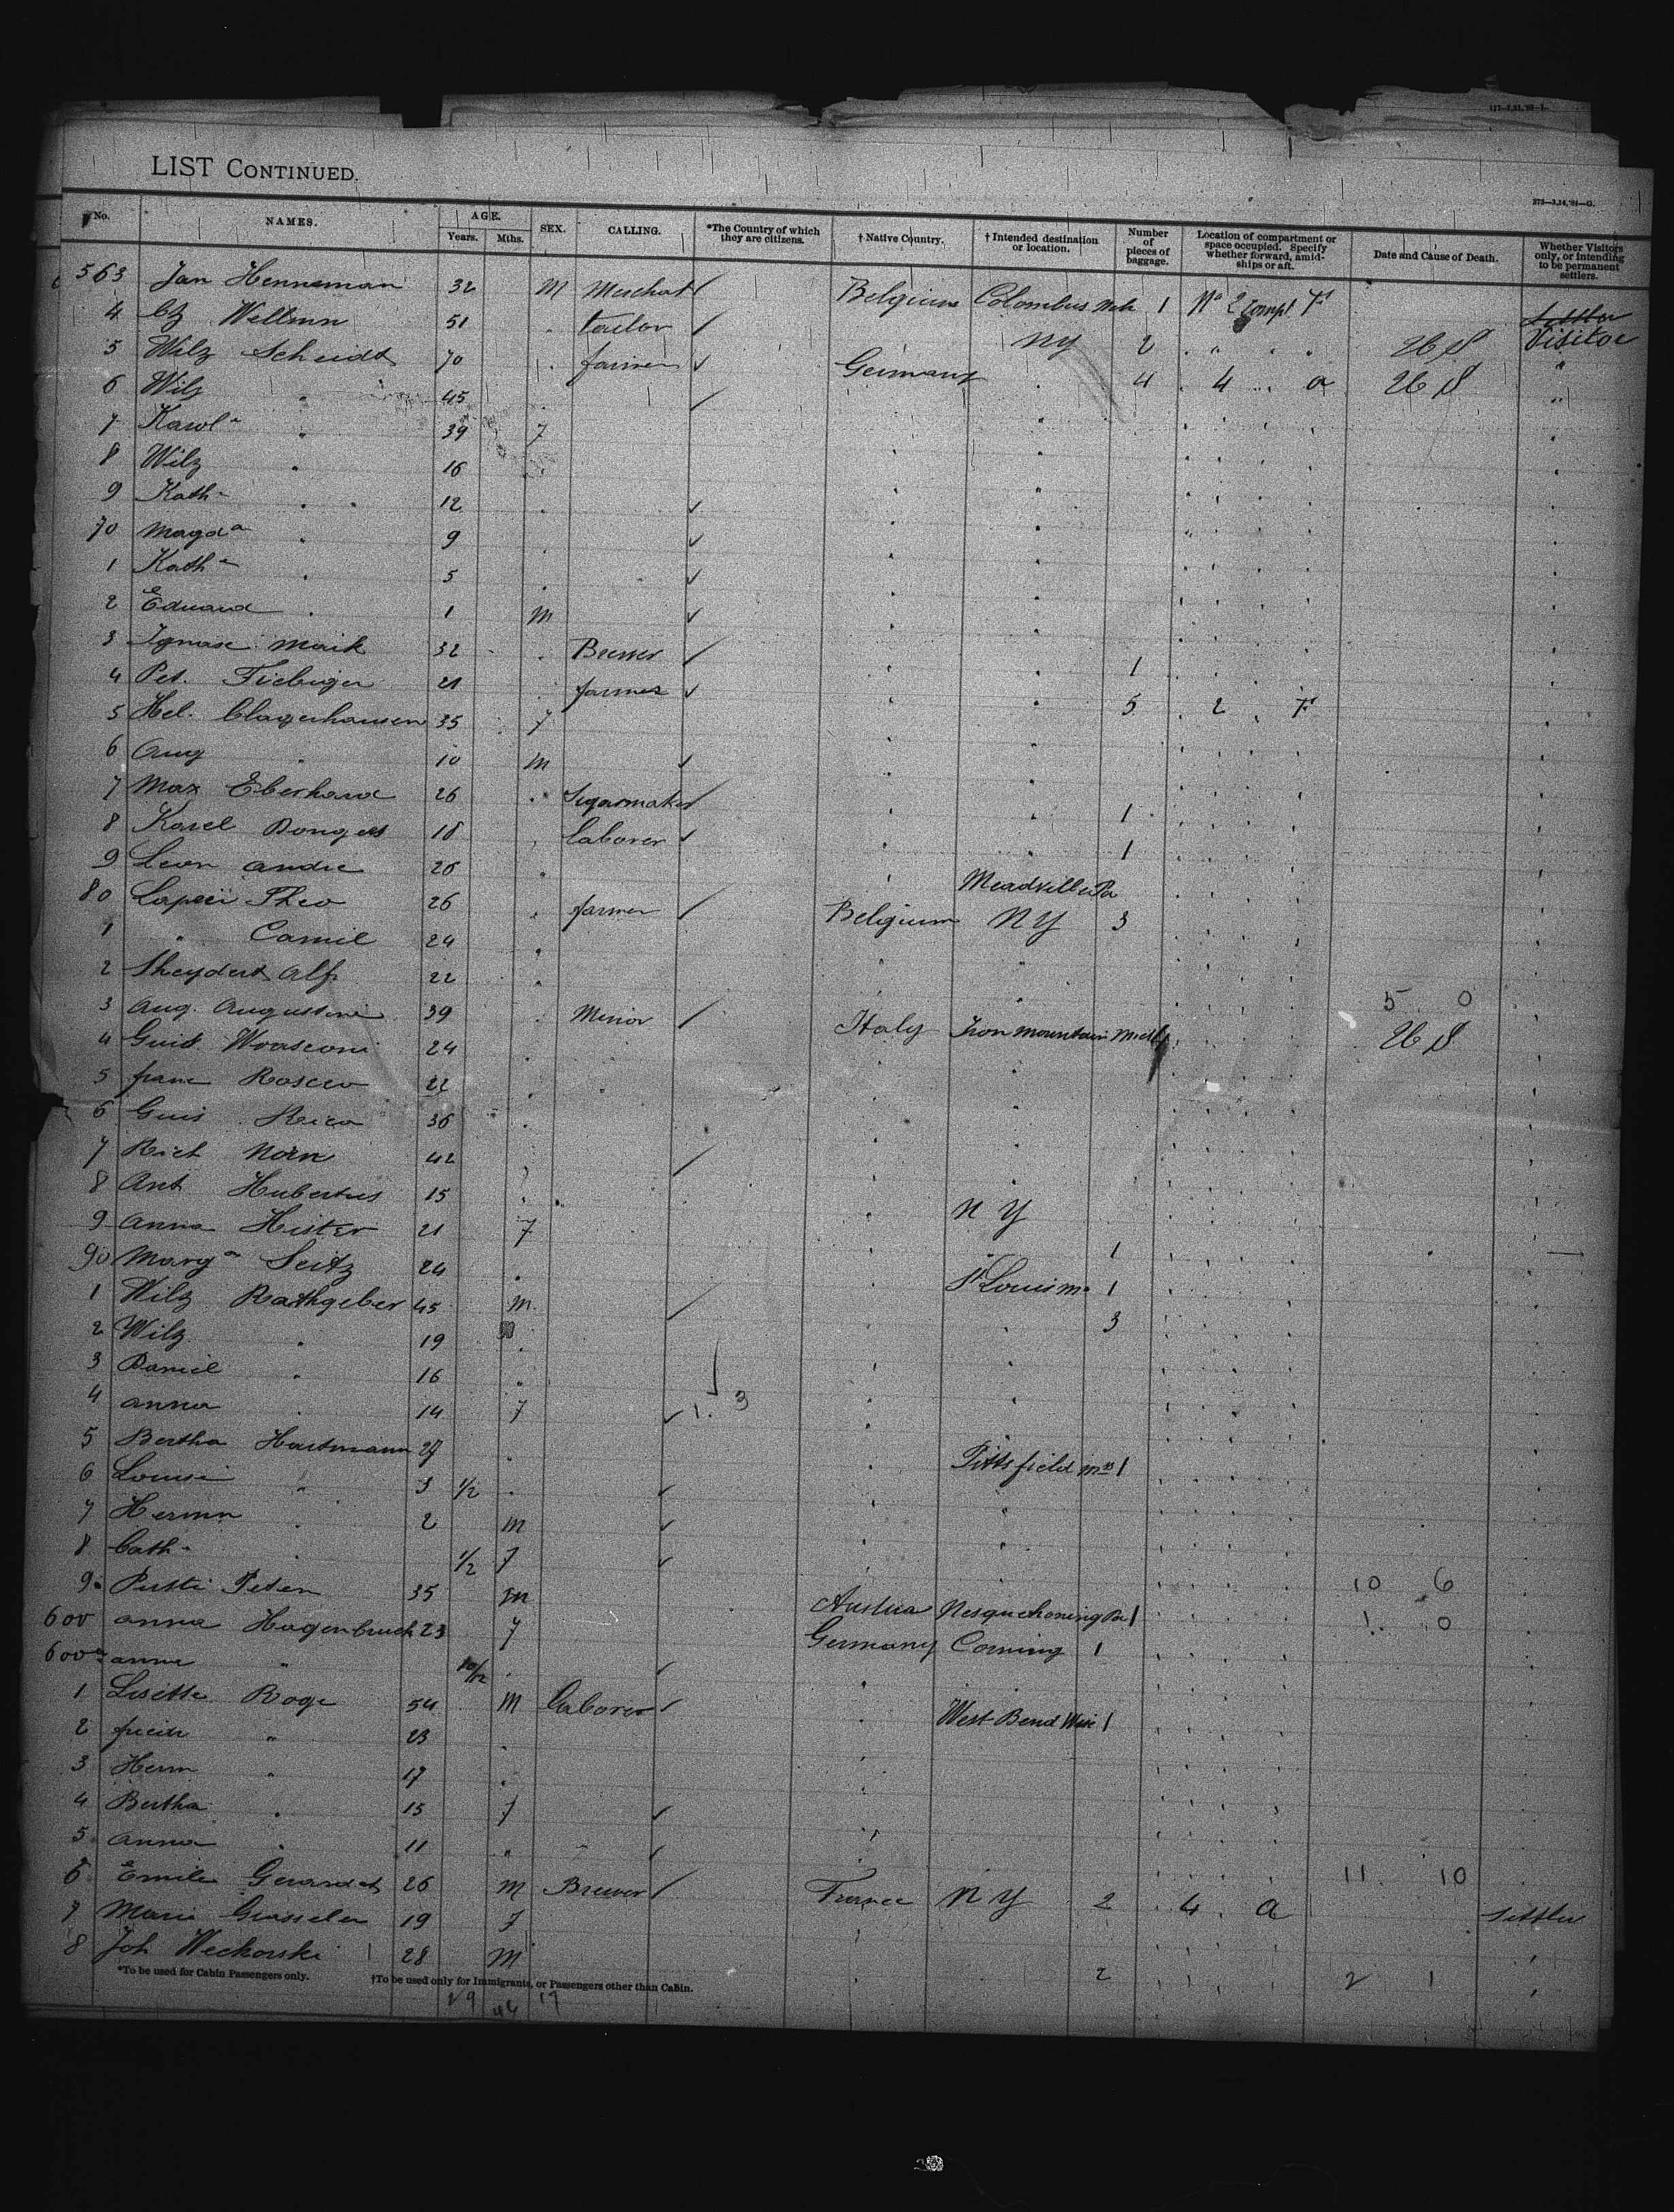 LIST CONTINUED.
273—3,14,'91—G.
No. NAMES. AGE. Years. Mths. SEX. CALLING. *The Country of which they are citizens. † Native Country. † Intended destination or location. Number of pieces of baggage. Location of compartment or space occupied. Specify whether forward, amidships or aft. Date and Cause of Death. Whether Visitors only, or intending to be permanent settlers.
563 Jan Henneman 32 M Merchat Belgium Colombus 1 No 2 Compt F Settler
4 Wellmn 51 tailor NY 2 Visitor
5 Wilz Scheidt 70 farmer Germany 4 4 a
6 Wilz 45
7 Karol a 39 f
8 Wilz 16
9 Kath a 12
70 Magd a 9
1 Kath a 5
2 Eduard 1 M
3 Ignase Maik 32 Brewer 1
4 Pet. Fiebiger 21 farmer 5 2 F
5 Hel. Clagenhausen 35 f
6 Aug 10 M
7 Max Eberhard 26 Sigarmaker 1
8 Karel Donges 18 laborer 1
9 Leon Andre 26 Meadville Pa
80 Theo 26 farmer Belgium NY 3
1 " Camil 24
2 Alf. 22 5 0
3 Aug. Augustini 39 Minor Italy Iron Mountain Mich
4 24
5 franc 22
6 Guis Rica 36
7 Rich 42
8 Ant Hubertus 15 NY
9 Anna Hister 21 f 1
90 Marg a Seitz 24 St Louis Mo 1
1 Wilz Rathgeber 45 M 3
2 Wilz " 19
3 Daniel " 16
4 Anna 14 f 1. 3
5 Bertha Hartmann 27 Pittsfield Mss 1
6 Louise " 3 1/2
7 Hermn 2 M
8 Cath a 1/2 f
9 Peter 35 M Austria Nesquehoning Pa 1 10 6
600 Anna Hagenbruch 23 f Germany Corning 1 1. 0
600a Anna " 10/12
1 Lisette Roge 54 M laborer West Bend Wis 1
2 " 23
3 Herm " 17
4 Bertha 15 f
5 Anna 11
6 Emile 26 M Brewer France NY 2 4 a 11 10
7 Marie 19 f Settler
8 Joh Weckorski 28 M 2 2 1
*To be used for Cabin Passengers only. †To be used only for Immigrants, or Passengers other than Cabin.
29 46 17